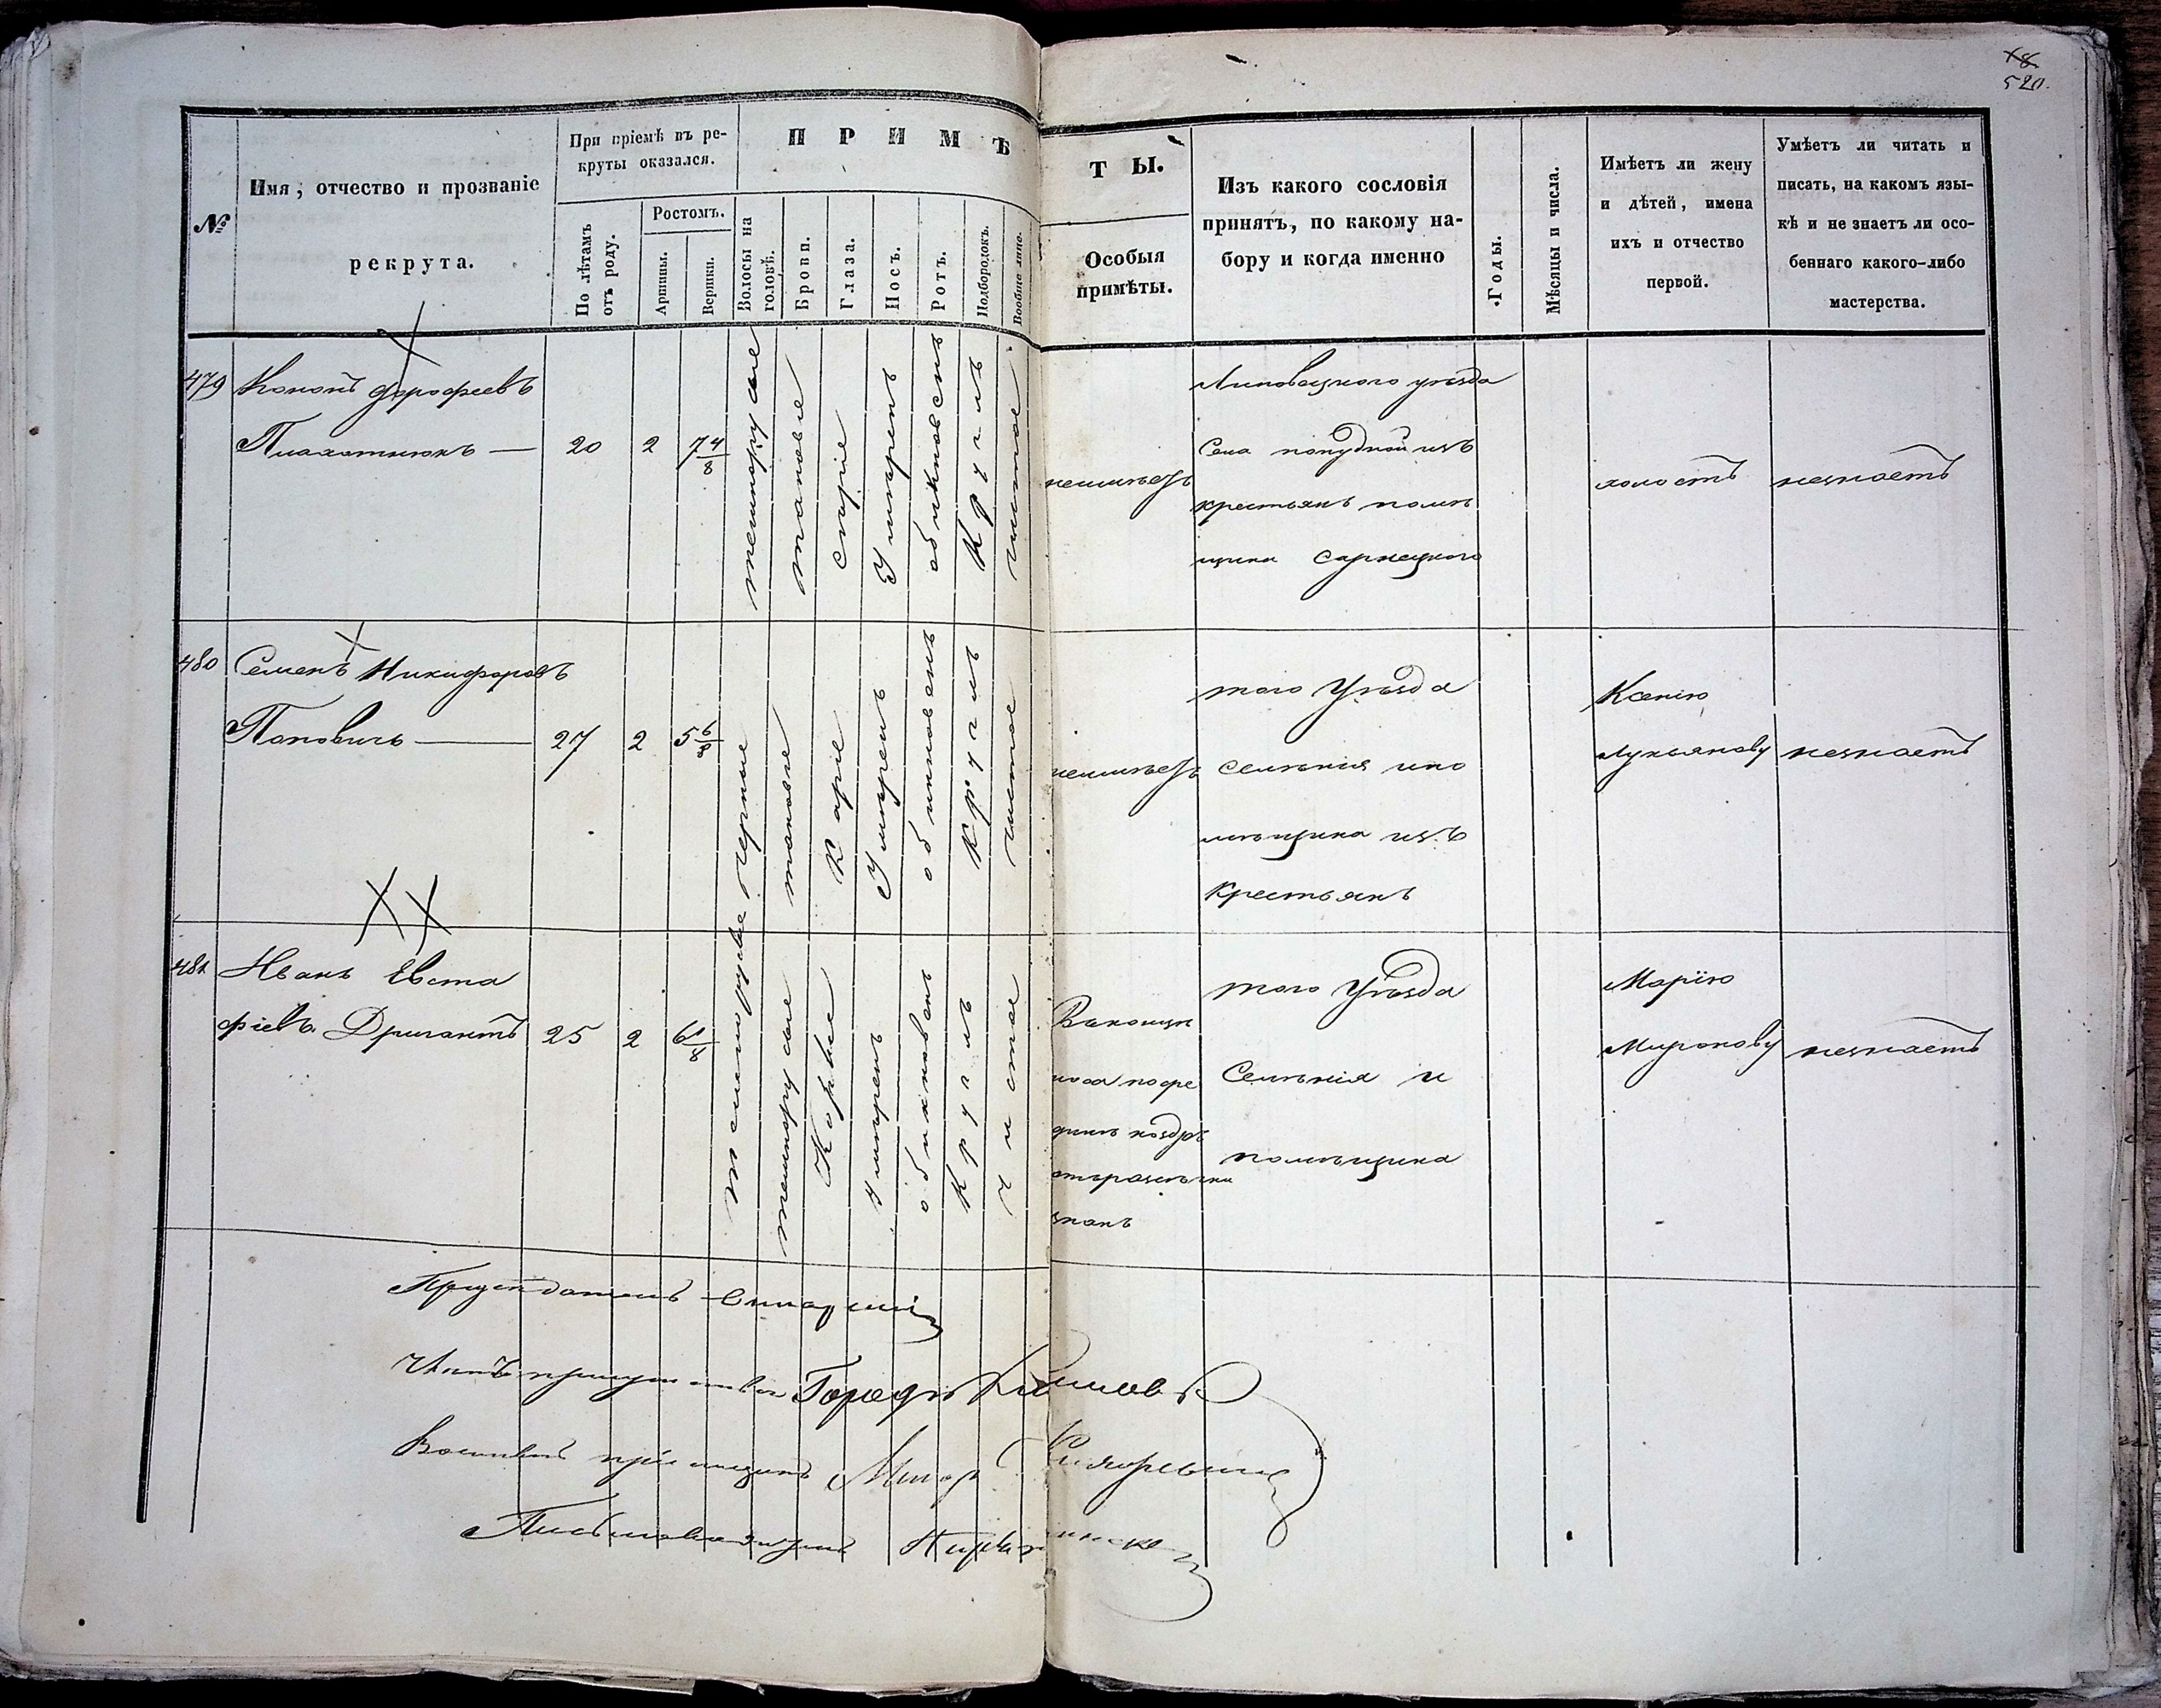 520.
№
Имя, отчество и прозваніе
рекрута.
При пріемѣ въ ре-
круты оказался.
По лѣтамъ
отъ роду.
Ростомъ.
Аршины.
Вершки.
ПРИМѢ
Волосы на
головѣ.
Брови.
Глаза.
Носъ.
Ротъ.
Подбородокъ.
Вообще лицо.
ТЫ.
Особыя
примѣты.
Изъ какого сословія
принятъ, по какому на-
бору и когда именно
Годы.
Мѣсяцы и числа.
Имѣетъ ли жену
и дѣтей, имена
ихъ и отчество
первой.
Умѣетъ ли читать и
писать, на какомъ язы-
кѣ и не знаетъ ли осо-
беннаго какого-либо
мастерства.
479
Кононъ Дорофеевъ
Плахотнюкъ —
20
2
7 4/8
темнорусые
таковые
сѣрые
Умѣренъ
обыкновенъ
Круглъ
чистое
неимѣетъ
Липовецкого уѣзда
Села попудной изъ
крестьянъ помѣ
щика Сарнецкого
холостъ
незнаетъ
480
Семенъ Никифоровъ
Поповичъ —
27
2
5 6/8
черные
таковые
Каріе
Умѣренъ
обикновенъ
Круглъ
чистое
неимѣетъ
того Уѣзда
селѣнія ипо
мѣщика изъ
Крестьянъ
Ксенію
Лукьянову
незнаетъ
481
Иванъ Евста
фіевъ Дригантъ
25
2
6 1/8
темнорусые
темнорусые
Каріе
умѣренъ
обикновенъ
Круглъ
чистое
носа посре
динѣ ноздрѣ
знакъ
того Уѣзда
Селѣнія и
помѣщика
Марію
Миронову
незнаетъ
Предсѣдатель
Членъ присутствія Городн
Военный пріемщикъ Маіоръ
Письмоводитель